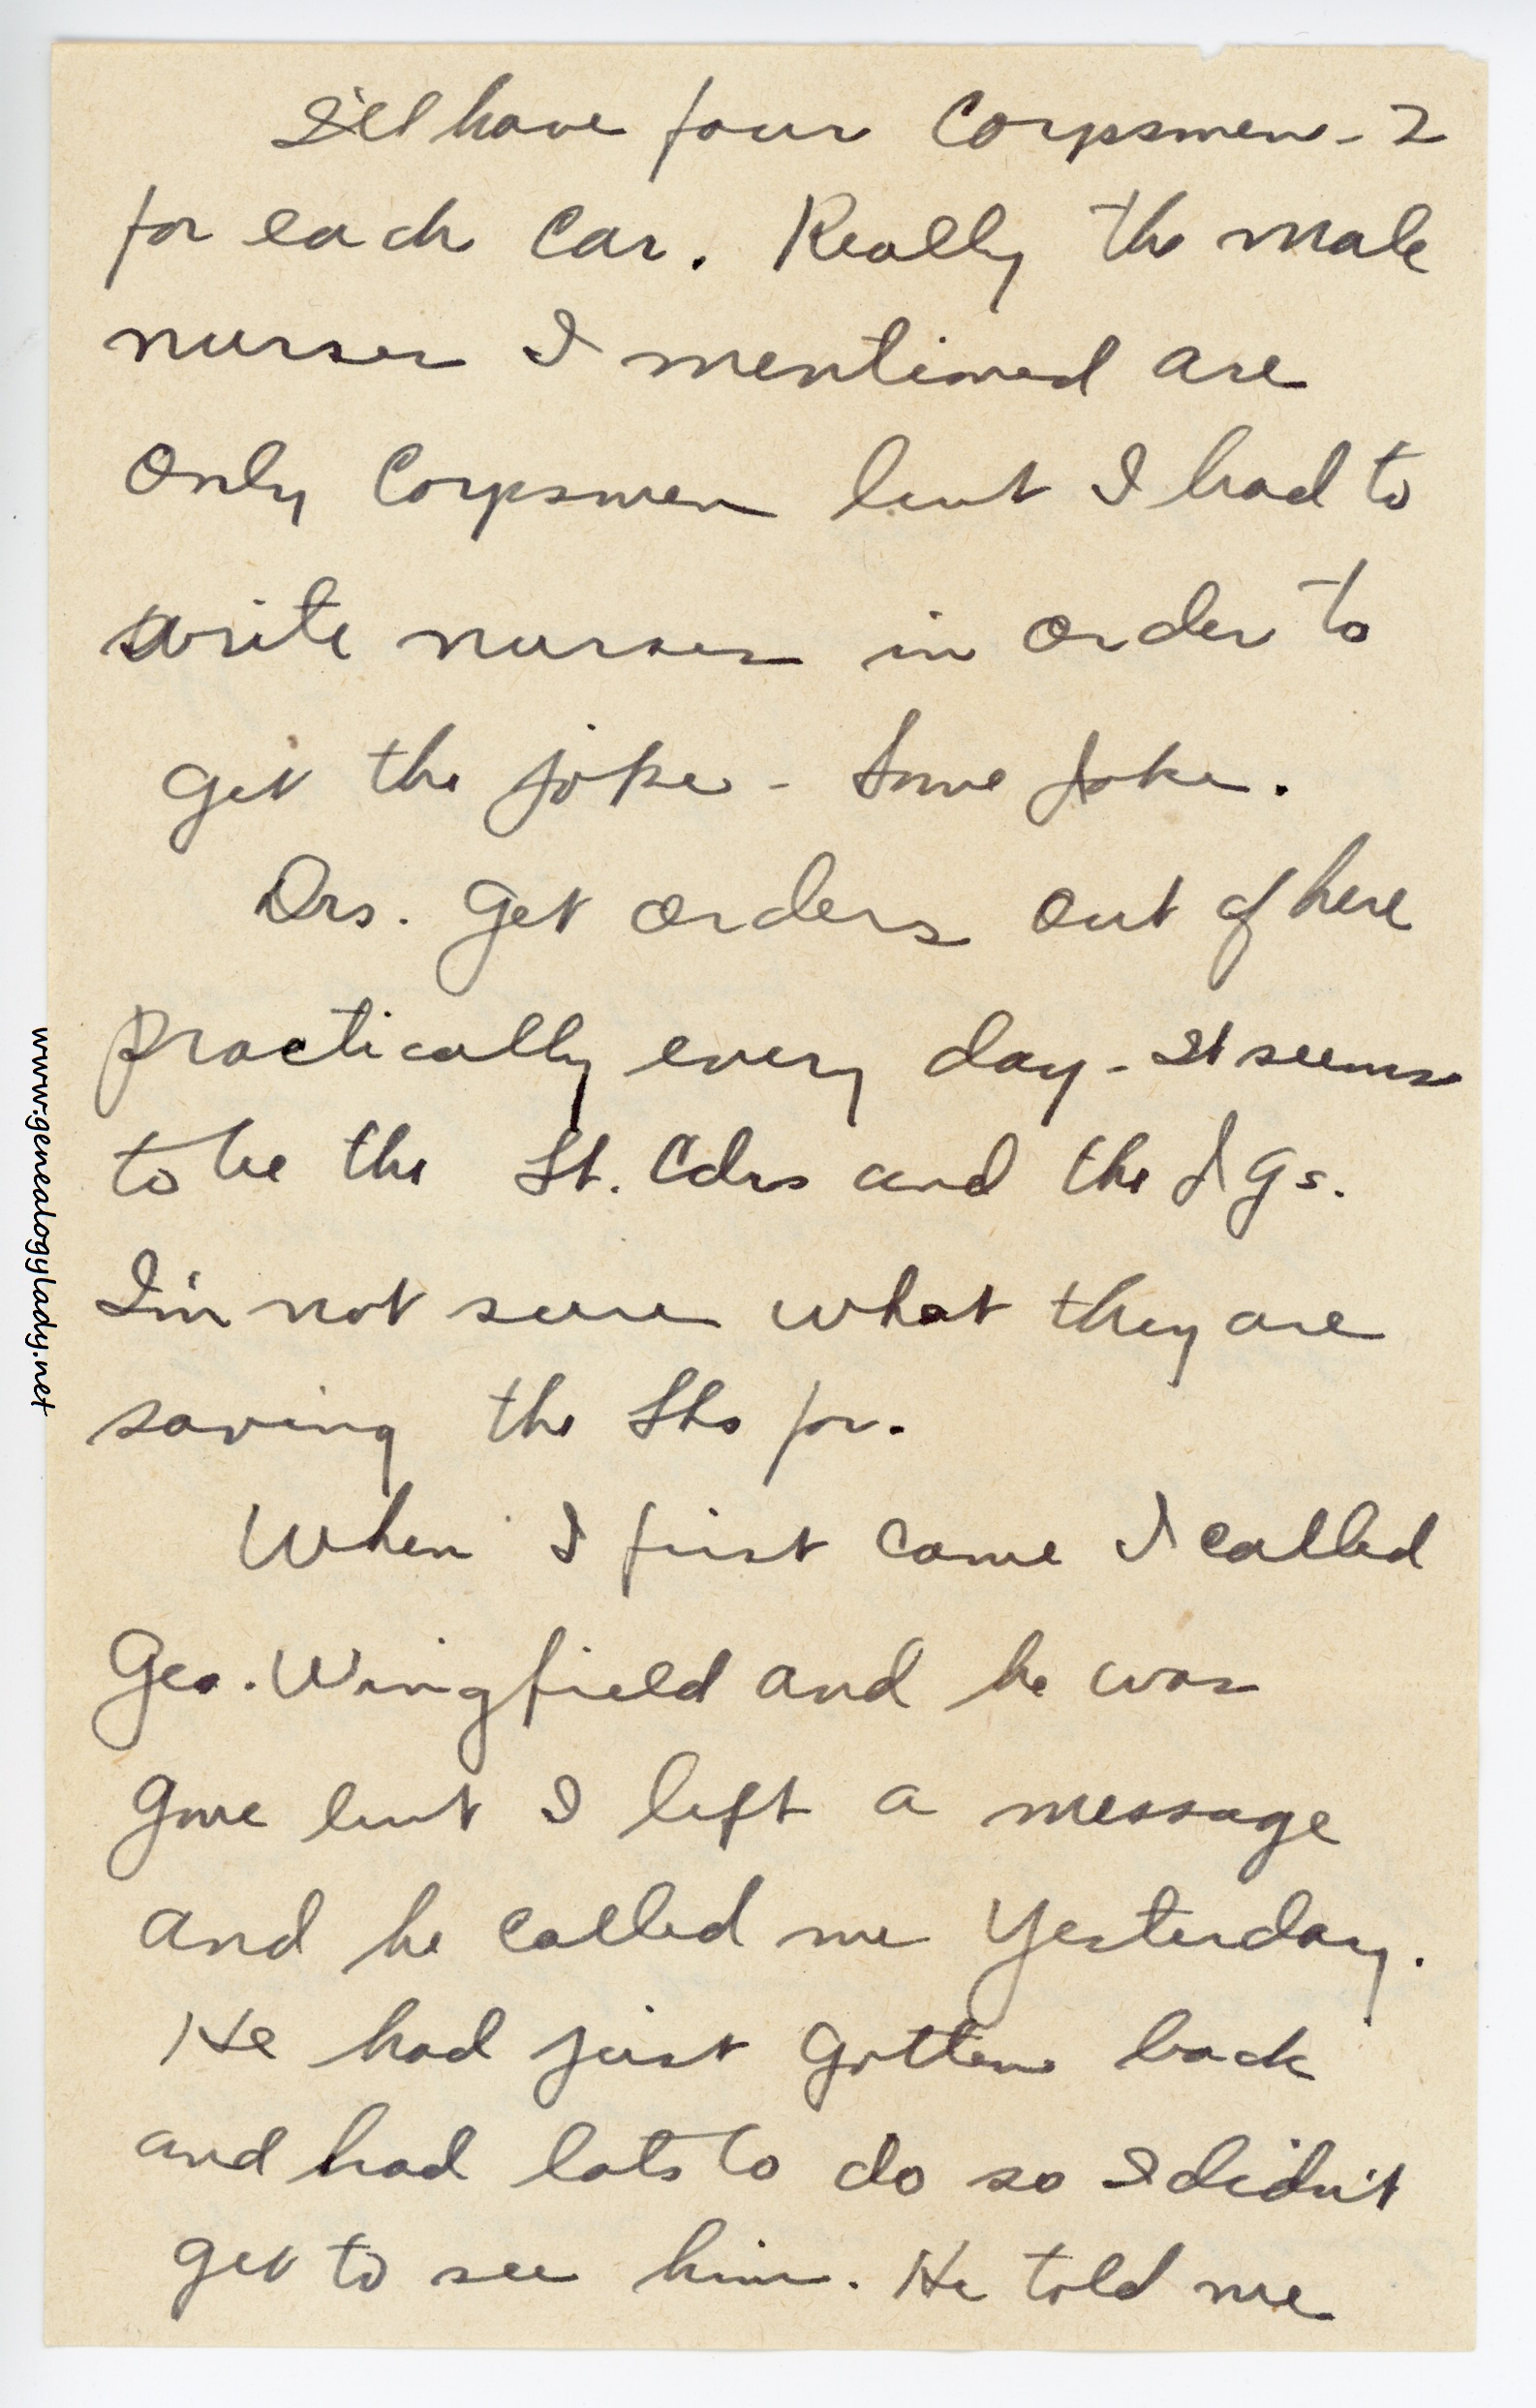 I'll have four Corpsmen - 2
for each car. Really the male
nurses I mentioned are
only Corpsmen but I had to
write nurses in order to
get the joke - Some joke.
Drs. get orders out of here
practically every day - It seems
to be the Lt. Cdrs and the J Gs.
I'm not sure what they are
saving the Lts for.
When I first came I called
Geo. Wingfield and he was
gone but I left a message
and he called me yesterday.
He had just gotten back
and had lots to do so I didn't
get to see him. He told me
www.genealogylady.net